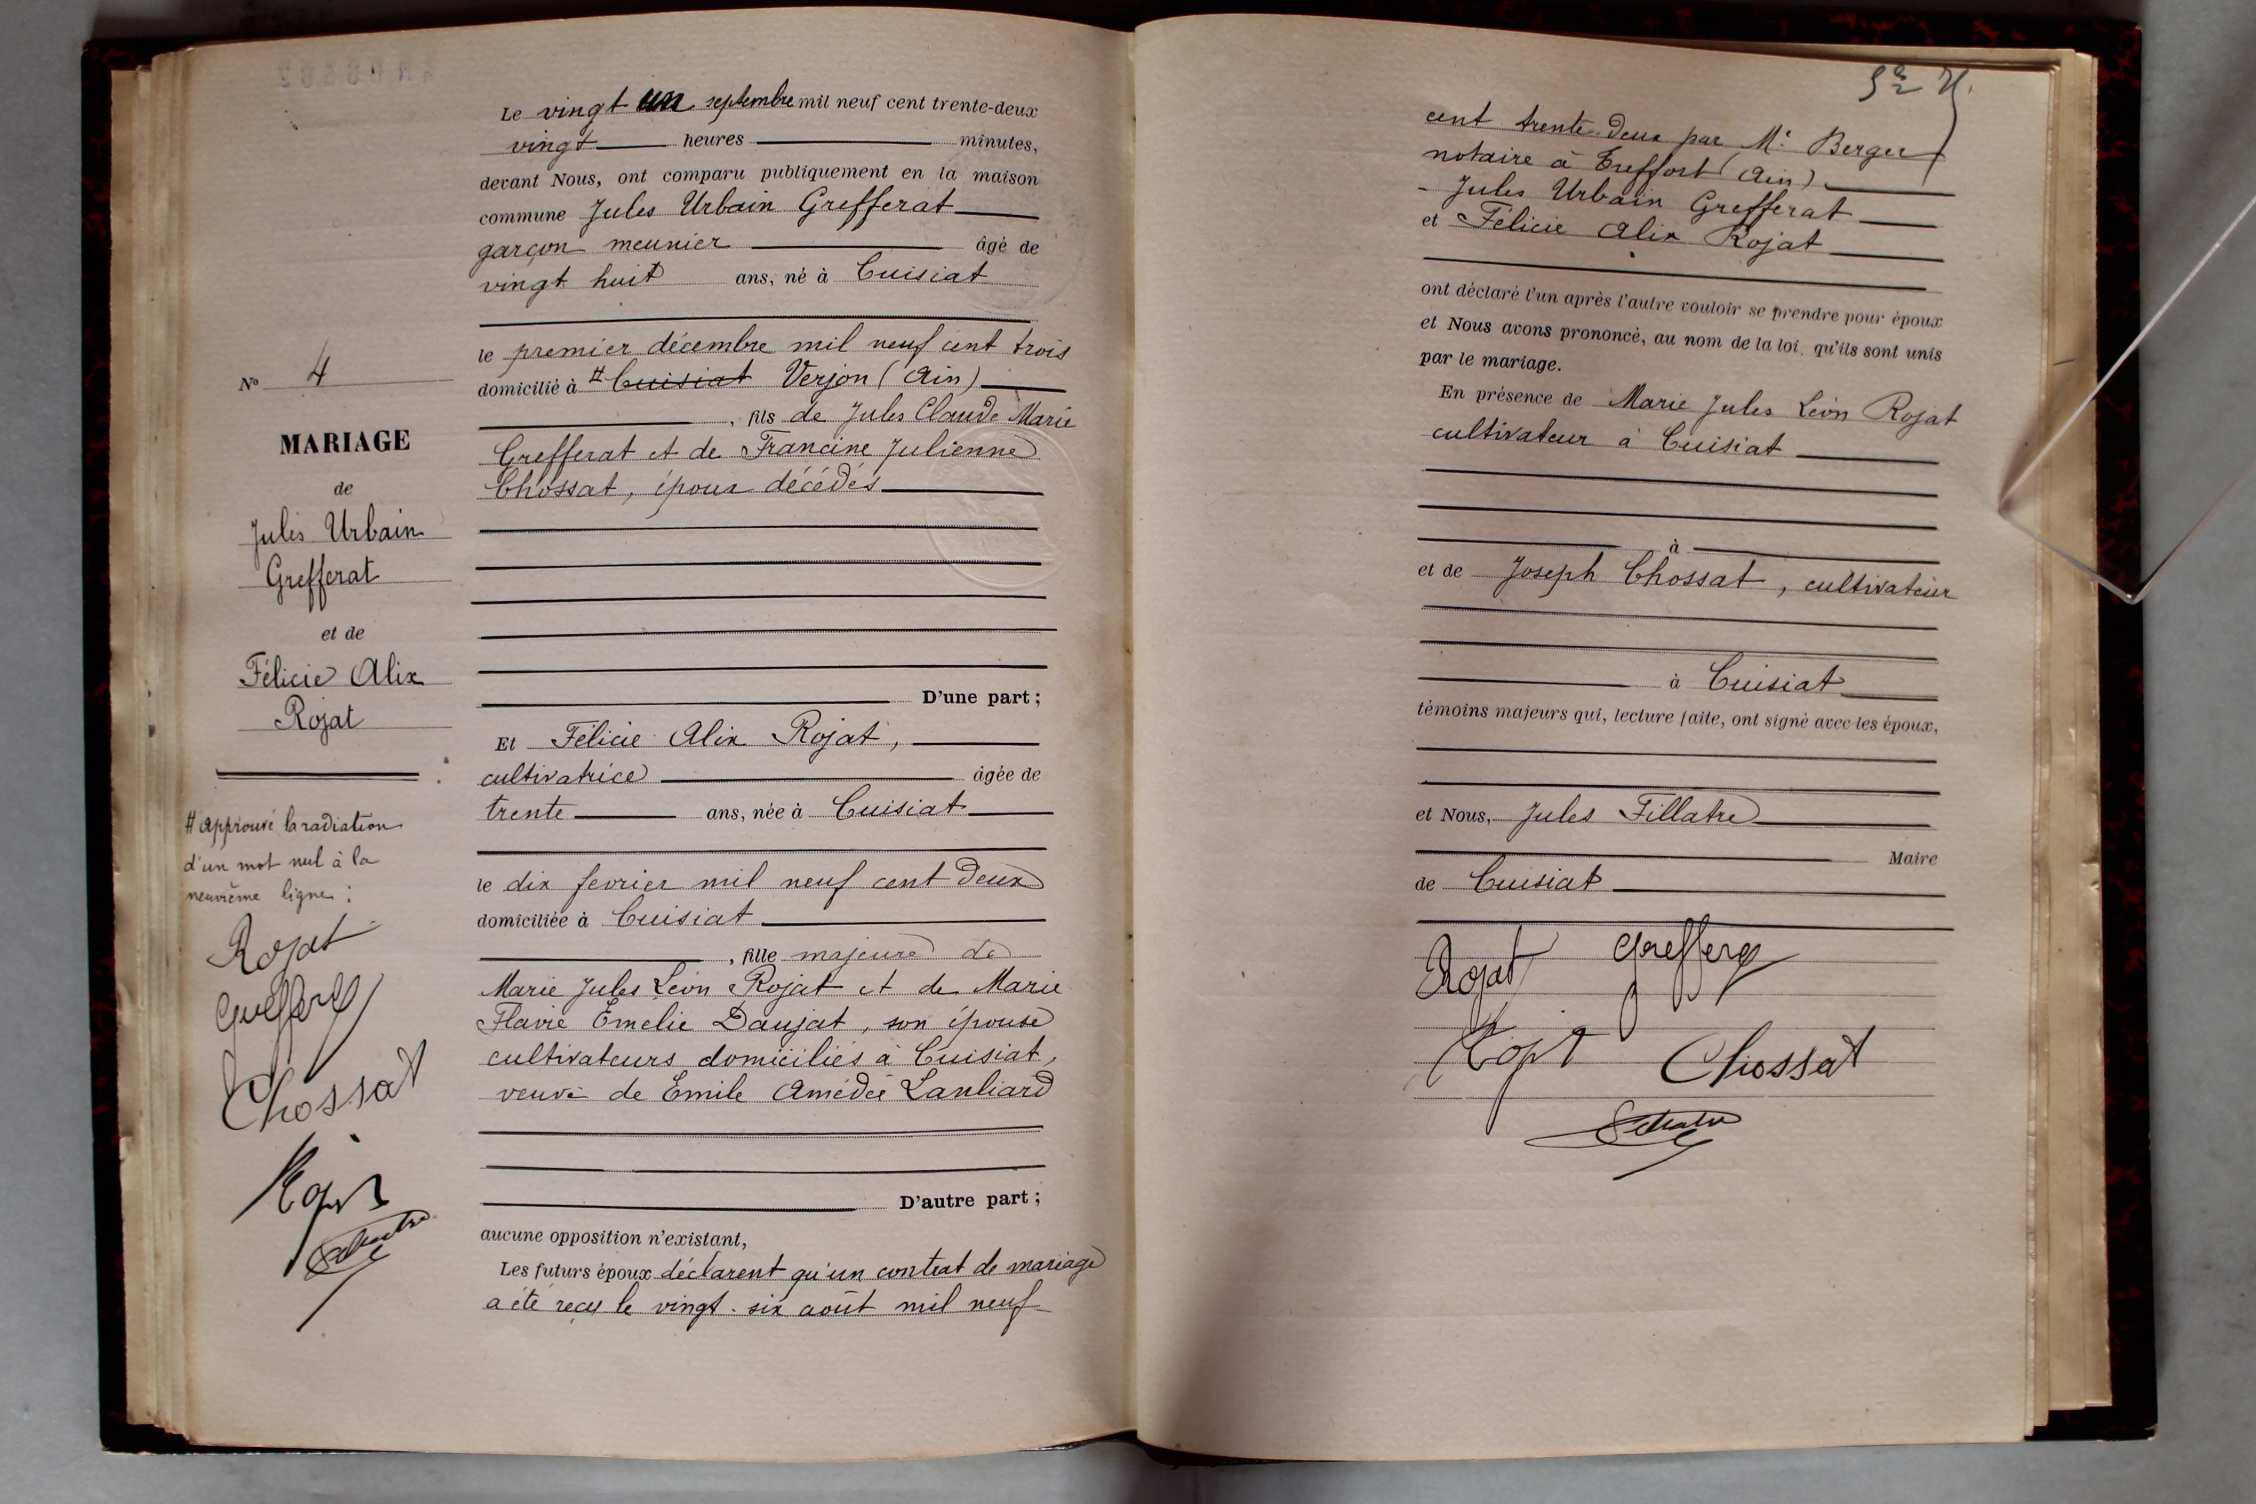 Le vingt un septembre mil neuf cent trente-deux
vingt heures minutes,
devant Nous, ont comparu publiquement en la maison
commune Jules Urbain Grefferat
garçon meunier âgé de
vingt huit ans, né à Cuisiat
le premier décembre mil neuf cent trois
domicilié à # Cuisiat Verjon (Ain)
, fils de Jules Claude Marie
Grefferat et de Francine Julienne
Chossat, époux décédés
D'une part;
Et Félicie Alix Rojat,
cultivatrice âgée de
trente ans, née à Cuisiat
le dix fevrier mil neuf cent deux
domiciliée à Cuisiat
, fille majeure de
Marie Jules Léon Rojat et de Marie
Flavie Emelie Daujat, son épouse
cultivateurs domiciliés à Cuisiat,
veuve de Emile Amédée Lanliard
D'autre part;
aucune opposition n'existant,
Les futurs époux déclarent qu'un contrat de mariage
a été reçu le vingt-six août mil neuf
No 4
MARIAGE
de
Jules Urbain
Grefferat
et de
Félicie Alix
Rojat
# Approuvé la radiation
d'un mot nul à la
neuvième ligne :
Rojat
Chossat
cent trente-deux par Me Berger
notaire à Treffort (Ain)
- Jules Urbain Grefferat
et Félicie Alix Rojat
ont déclaré l'un après l'autre vouloir se prendre pour époux
et Nous avons prononcé, au nom de la loi, qu'ils sont unis
par le mariage.
En présence de Marie Jules Léon Rojat
cultivateur à Cuisiat
à
et de Joseph Chossat, cultivateur
à Cuisiat
témoins majeurs qui, lecture faite, ont signé avec les époux,
et Nous, Jules Fillatre
Maire
de Cuisiat
Rojat
Chossat